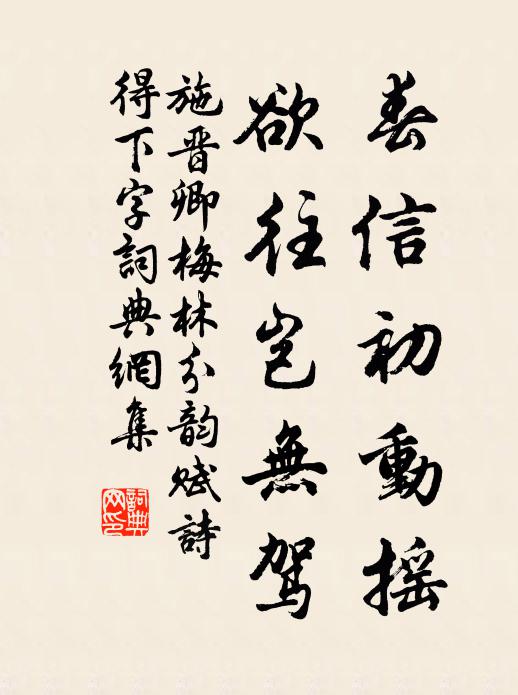 春信初動摇
欲往岂無驾
施晋卿梅林分韵赋詩
得下字詞典網集
詞典网印